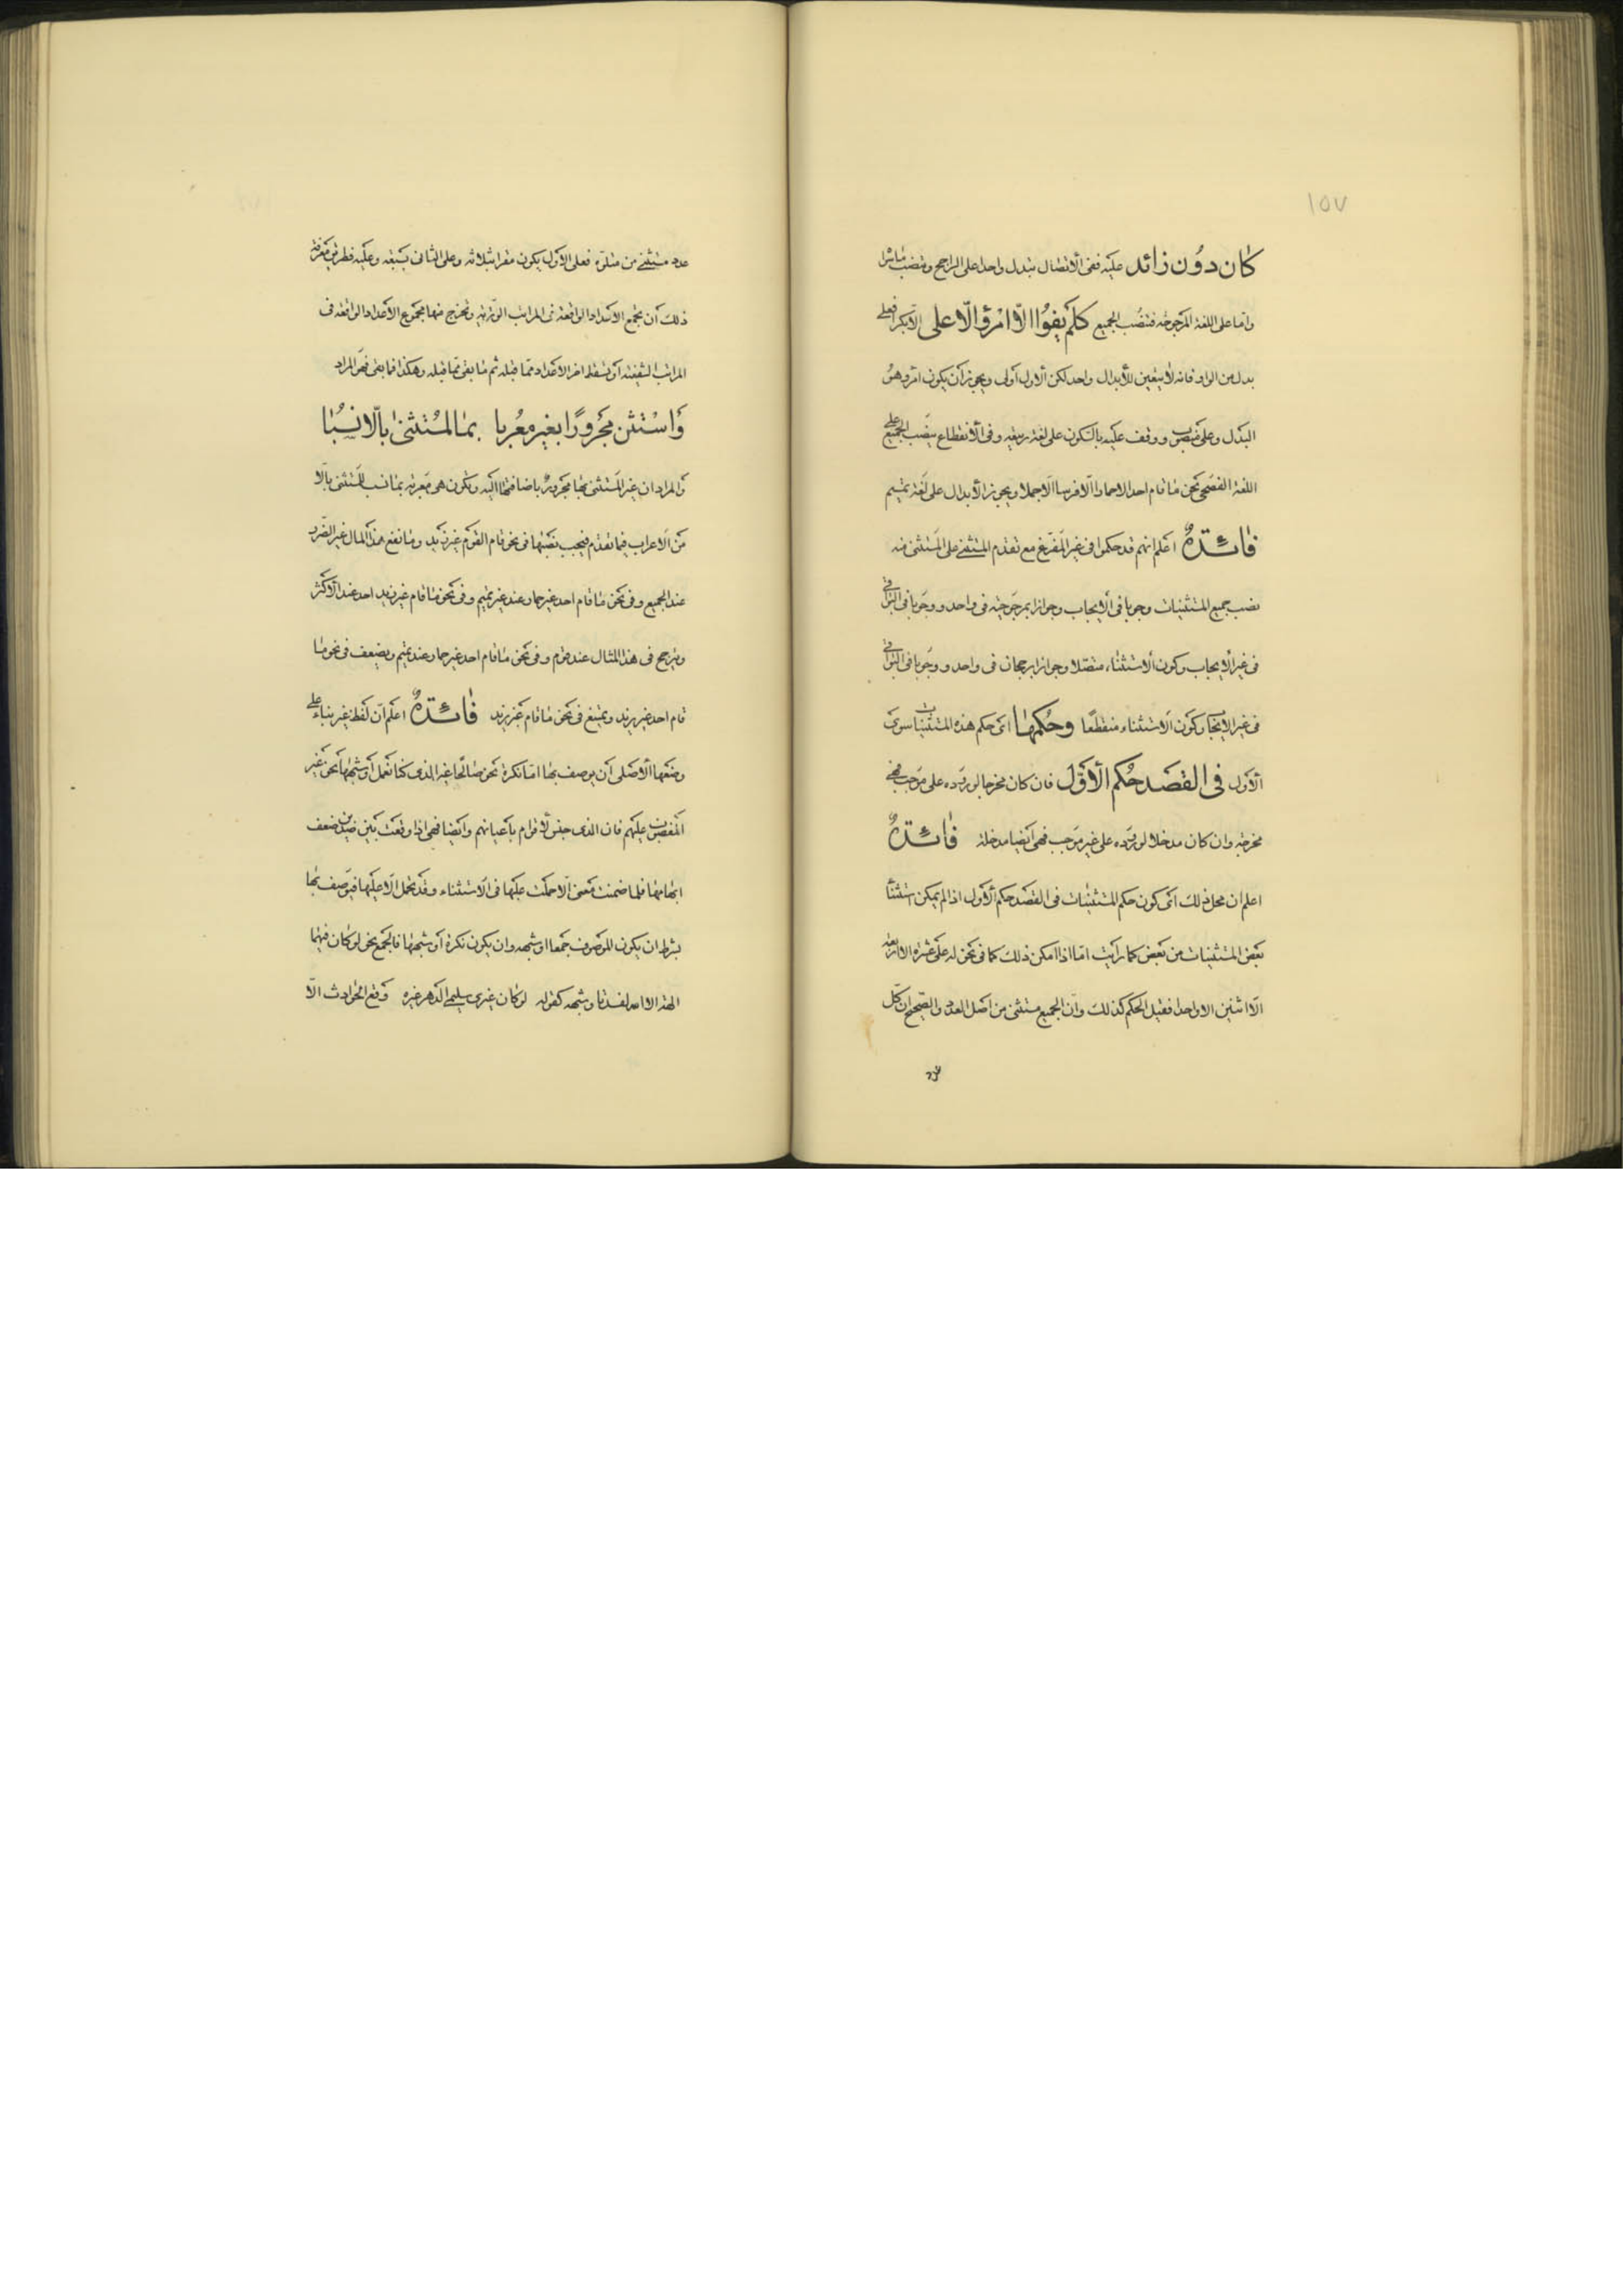 ١٥٧
كان دون زائد عليه ففى الاتصال تبدل واحدا على الراجح وتنصب ما سرا
واما على اللغة المرجوحة فتنصب الجميع كلم يفوا الا امرؤ الا على الا بكرا فعلى
بدل من الواو فانه لا يتعين للأبدال واحد لكن الاول أولى ويجوز أن يكون امرؤ هو
البدل وعلى منصوب ووقف عليه بالسكون على لغة ربيعة وفى الانقطاع ينصب الجميع على
اللغة الفصحى نحو ما قام احد الا حمارا الا فرسا الا جملا ويجوز الأبدال على لغة تميم
فائدة اعلم انهم قد حكموا فى غير المفرغ مع تقدم المستثنى على المستثنى منه
نصب جميع المستثنيات وجوبا فى الايجاب وجوازا بمرجوحية فى واحد ووجوبا فى البواقى
فى غير الايجاب وكون الاستثناء متصلا وجوازا برجحان فى واحد ووجوبا فى البواقى
فى غير الايجاب وكون الاستثناء منقطعا وحكمها اى حكم هذه المستثنيات سوى
الاول فى القصد حكم الاول فان كان مخرجا لوروده على موجب فهى
مخرجة وان كان مدخلا لوروده على غير موجب فهى أيضا مدخلة فائدة
اعلم ان محل ذلك اى كون حكم المستثنيات فى القصد حكم الاول اذا لم يمكن استثنأ
بعض المستثنيات من بعض كما رأيت اما اذا امكن ذلك كما فى نحو له على عشرة الا اربعة
الا اثنين الا واحدا فقيل الحكم كذلك وأن الجميع مستثنى من اصل العدد والصحيح ان كل
عدد
عدد مستثنى من متلوه فعلى الاول يكون مقرا بثلاثة وعلى الثانى بسبعة وعليه فطريق معرفة
ذلك أن تجمع الاعداد الواقعة فى المراتب الوترية وتخرج منها مجموع الاعداد الواقعة فى
المراتب الشفعية أو تسقط اخر الاعداد مما قبله ثم ما بقى مما قبله وهكذا فما بقى فهو المراد
واستثن مجرورا بغير معربا بما لمستثنى بالا نسبا
والمراد ان غير المستثنى بها مجرور باضافتها اليه وتكون هى معربة بما نسب للمستثنى بالا
من الاعراب فيما تقدم فيجب نصبها فى نحو قام القوم غير زيد وما نفع هذا المال غير الضرر
عند الجميع وفى نحو ما قام احد غير حمار عند غير تميم وفى نحو ما قام غير زيد احد عند الاكثر
ويترجح فى هذا المثال عند قوم وفى نحو ما قام احد غير حمار عند تميم ويضعف فى نحو ما
قام احد غير زيد ويمتنع فى نحو ما قام غير زيد فائدة اعلم أن لفظ غير بناء على
وضعها الاصلى أن يوصف بها اما نكرة نحو صالحا غير الذى كنا نعمل أو شبهها نحو غير
المغضوب عليهم فان الذى جنس لا قوام بأعيانهم وأيضا فهى اذا وقعت بين ضدين ضعف
ابهامها فلما ضمنت معنى الا حملت عليها فى الاستثناء وقد تحمل الا عليها فيوصف بها
بشرط ان يكون الموصوف جمعا او شبهه وان يكون نكرة أو شبهها فالجمع نحو لو كان فيهما
الهة الا الله لفسدتا وشبهه كقوله لو كان غيرى سليمى الدهر غيره وقع الحوادث الا